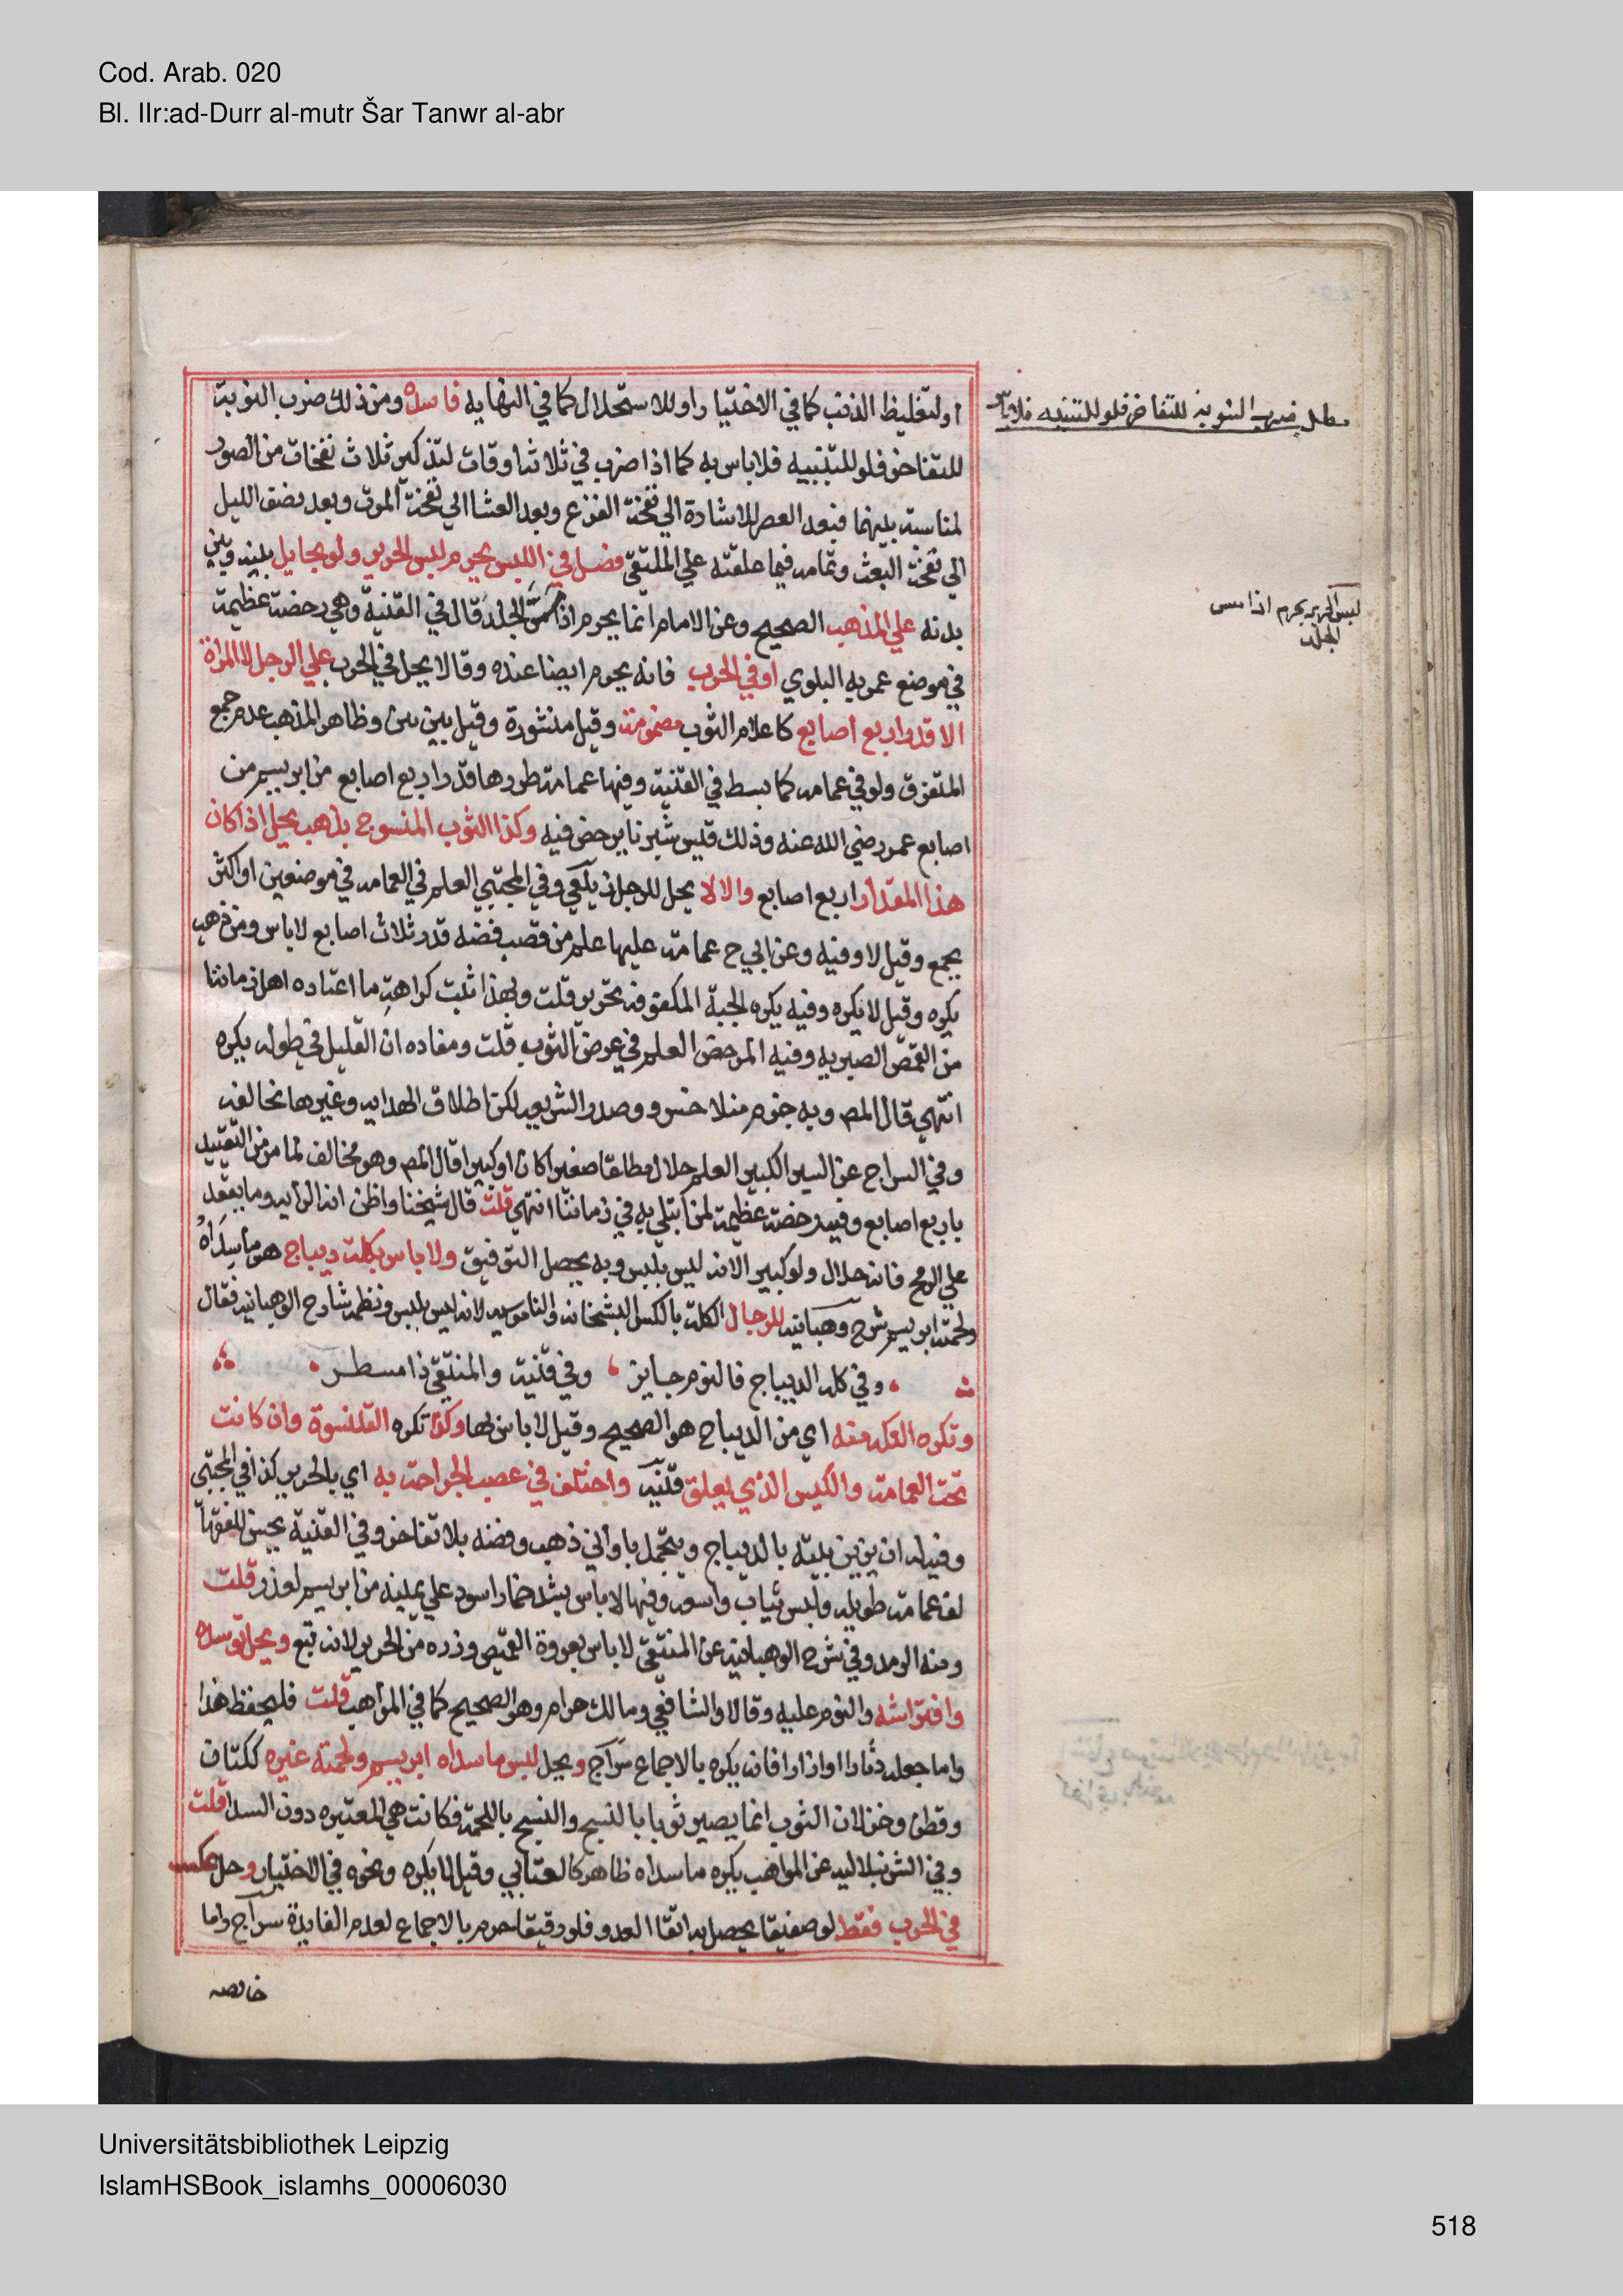 Cod. Arab. 020
Bl. IIr:ad-Durr al-mutr Šar Tanwr al-abr
او لتغليظ الذنب كما في الاختيار او للاستحلال كما في النهايه فايده ومن ذلك ضرب النوبة
للتفاخر فلو للتنبيه فلا باس به كما اذا ضرب في ثلاثة اوقات لتذكير ثلاث نفخات من الصور
لمناسبة بينهما فبعد العصر للاشارة الي نفخة الفزع وبعد العشا الي نفخة الموت وبعد نصف الليل
الي نفخة البعث وتمامه فيما علقته علي الملتقي فصل في اللبس يحرم لبس الحرير ولو بحايل بينه وبين
بدنه علي المذهب الصحيح وعن الامام انما يحرم اذا مس الجلد قال في القنية وهي رخصة عظيمة
في موضع عم به البلوي او في الحرب فانه يحرم ايضا عنده وقالا يحل في الحرب علي الرجل لا المراة
الا قدر اربع اصابع كاعلام الثوب مضمومة وقيل منشورة وقيل بين بين وظاهر المذهب عدم جمع
المتفرق ولو في عمامه كما بسط في القنية وفيها عمامة طررها قدر اربع اصابع من ابريسم من
اصابع عمر رضي الله عنه وذلك قيس شبرنا يرخص فيه وكذا الثوب المنسوج بذهب يحل اذا كان
هذا المقدار اربع اصابع والا لا يحل للرجل زيلعي وفي المجتبي العلم في العمامه في موضعين او اكثر
يجمع وقيل لا وفيه وعن ابي ح عمامة عليها علم من قصب فضه قدر ثلاث اصابع لا باس ومن ذهب
يكره وقيل لا يكره وفيه يكره الجبة المكفوفه بحرير قلت وبهذا ثبت كراهة ما اعتاده اهل زماننا
من القمص البصريه وفيه المرخص العلم في عرض الثوب قلت ومفاده ان القليل في طوله يكره
انتهي قال المص وبه جزم منلا خسرو وصدر الشريعه لكن اطلاق الهدايه وغيرها يخالفه
وفي السراج عن السير الكبير العلم حلال مطلقا صغيرا كان او كبيرا قال المص وهو مخالف لما مر من التقييد
باربع اصابع وفيه رخصة عظيمة لمن ابتلي به في زماننا انتهي قلت قال شيخنا واظن انه الرايه وما يعقد
علي الرمح فانه حلال ولو كبيرا لانه ليس بلبس وبه يحصل التوفيق ولا باس بكلة ديباج هو ما سداه
ولحمته ابريسم شرح وهبانيه للرجال الكلة بالكسر البشخانه والناموسيه لانه ليس بلبس ونظمه شارح الوهبانيه فقال
وفي كله الديباج فالنوم جايز وفي قنية والمنتقي ذا مسطر
وتكره التكه منه اي من الديباج هو الصحيح وقيل لا باس بها وكذا تكره القلنسوة وان كانت
تحت العمامة والكيس الذي يعلق قنيه واختلف في عصب الجراحة به اي بالحرير كذا في المجتبي
وفيه له ان يزين بيته بالديباج ويتجمل باواني ذهب وفضه بلا تفاخر وفي القنية يحسن للفقها
لف عمامة طويله ولبس ثياب واسعه وفيها لا باس بشد خمار اسود علي عينيه من ابريسم لعذر قلت
ومنه الرمد وفي شرح الوهبانيه عن المنتقي لا باس بعروة القميص وزره من الحرير لانه تبع ويحل توسده
وافتراشه والنوم عليه وقالا والشافعي ومالك حرام وهو الصحيح كما في المواهب قلت فليحفظ هذا
واما جعله دثارا او ازارا فانه يكره بالاجماع سراج ويحل لبس ما سداه ابريسم ولحمته غيره ككتان
وقطن وخز لان الثوب انما يصير ثوبا بالنسج والنسج باللحمة فكانت هي المعتبره دون السدا قلت
وفي الشرنبلاليه عن المواهب يكره ما سداه ظاهر كالعتابي وقيل لا يكره ونحوه في الاختيار وحل عكسه
في الحرب فقط لو صفيقا يحصل به اتقا العدو فلو رقيقا حرم بالاجماع لعدم الفايدة سراج واما
خالصه
مطلب ضرب النوبة للتفاخر فلو للتنبيه فلا باس
لبس الحرير يحرم اذا مس
الجلد
Universitätsbibliothek Leipzig
IslamHSBook_islamhs_00006030
518